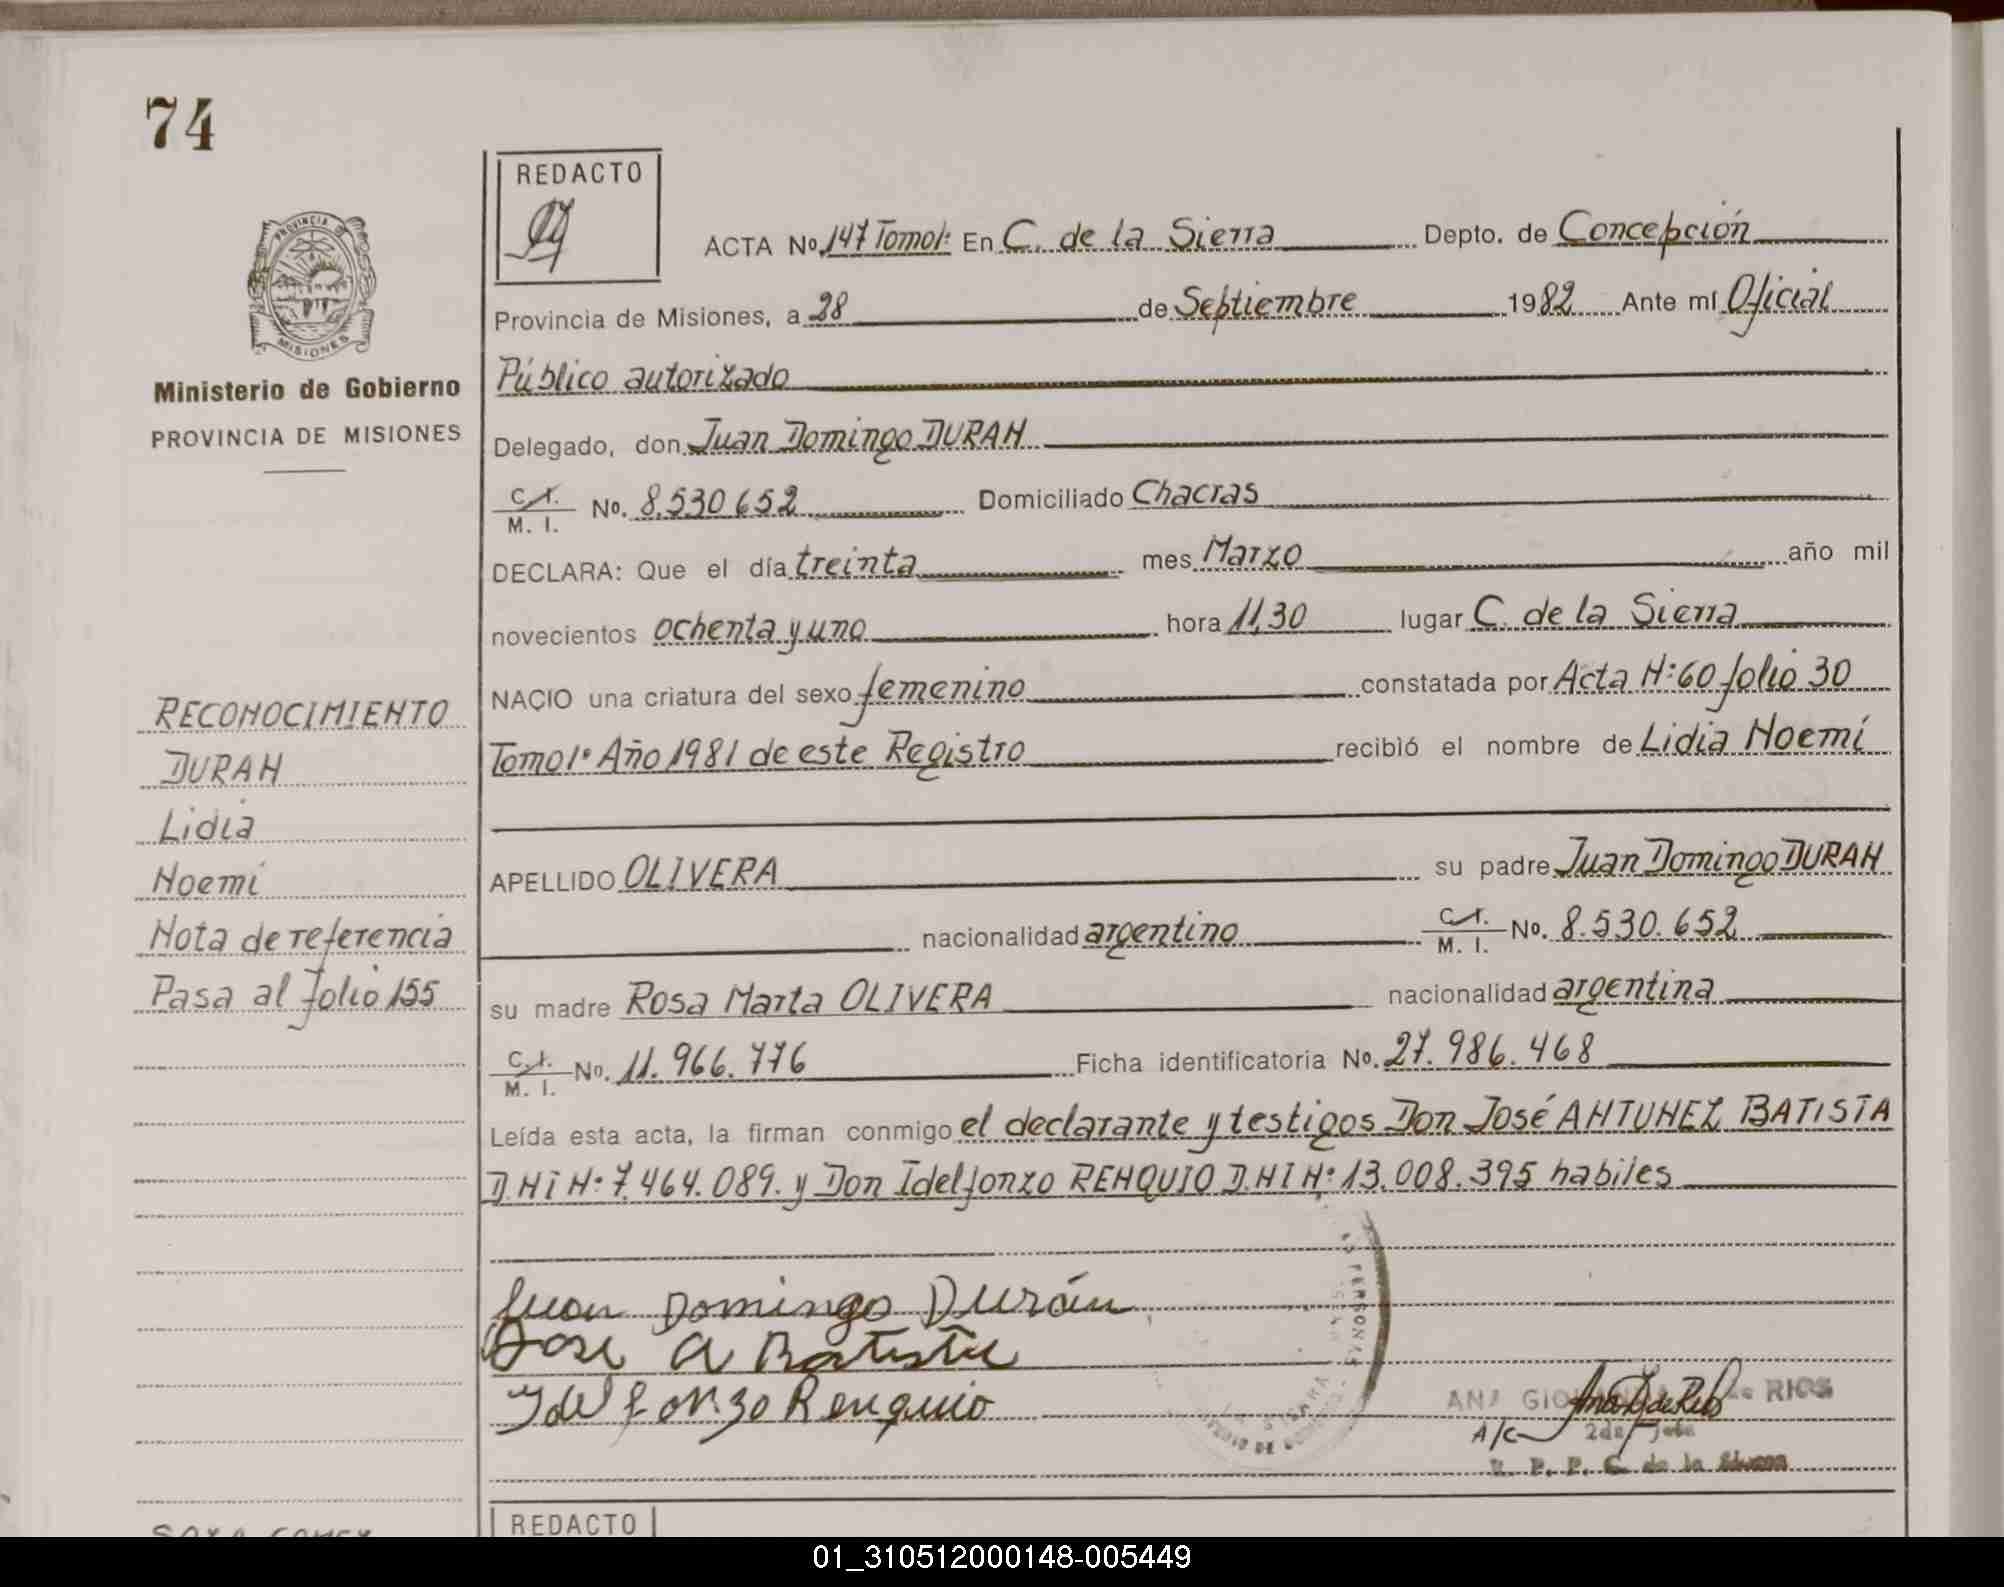 74
REDACTO
PROVINCIA DE
MISIONES
Ministerio de Gobierno
PROVINCIA DE MISIONES
RECONOCIMIENTO
DURAN
Lidia
Noemí
Nota de referencia
Pasa al folio 155
ACTA No. 147 Tomo 1º En C. de la Sierra Depto. de Concepción
Provincia de Misiones, a 28 de Septiembre 1982 Ante mí Oficial
Público autorizado
Delegado, don Juan Domingo DURAN
C. I. M. I. No. 8.530 652 Domiciliado Chacras
DECLARA: Que el día treinta mes Marzo año mil
novecientos ochenta y uno hora 11,30 lugar C. de la Sierra
NACIO una criatura del sexo femenino constatada por Acta Nº 60 folio 30
Tomo 1º Año 1981 de este Registro recibió el nombre de Lidia Noemí
APELLIDO OLIVERA su padre Juan Domingo DURAN
nacionalidad argentino C. I. M. I. No. 8.530.652
su madre Rosa Marta OLIVERA nacionalidad argentina
C. I. M. I. No. 11.966.776 Ficha identificatoria No. 27.986.468
Leída esta acta, la firman conmigo el declarante y testigos Don José ANTUNEZ BATISTA
D.N.I Nº 7.464.089. y Don Idelfonzo RENQUIO D.N.I Nº 13.008.395 habiles
Juan Domingo Durán
Jose A Batista
Ydelfonzo Renquio
RIOS
A/C 2do Jefe
R. P. P. C. de la Sierra
REDACTO
01_310512000148-005449